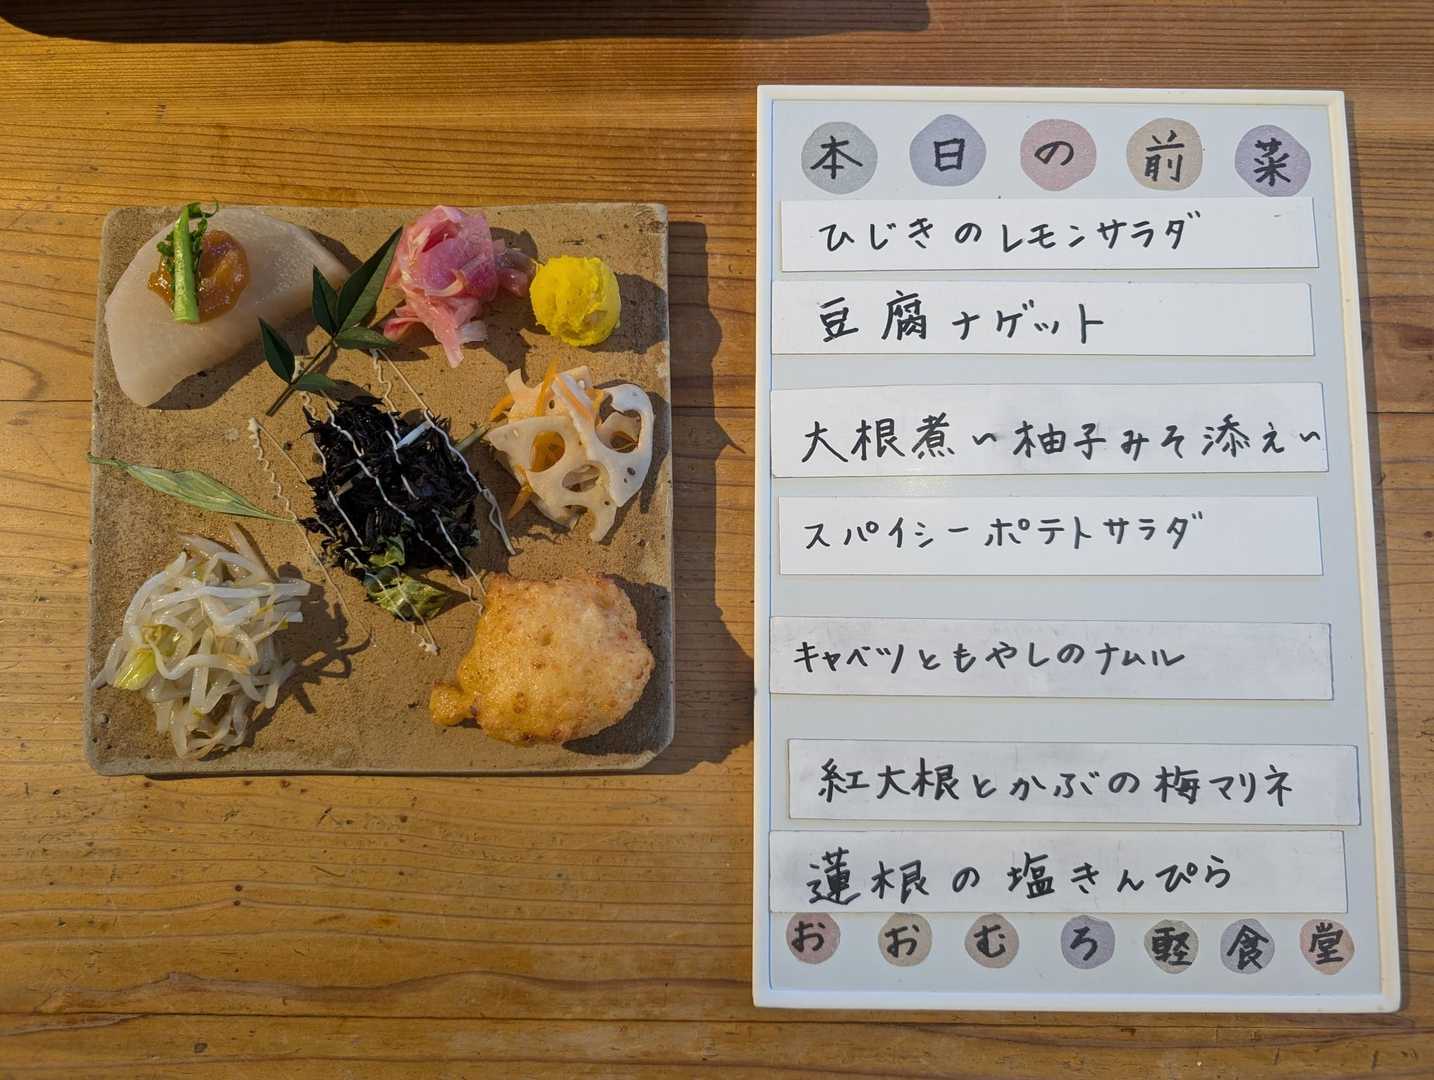 本日の前菜
ひじきのレモンサラダ
豆腐ナゲット
大根煮〜柚子みそ添え〜
スパイシーポテトサラダ
キャベツともやしのナムル
紅大根とかぶの梅マリネ
蓮根の塩きんぴら
おおむろ軽食堂